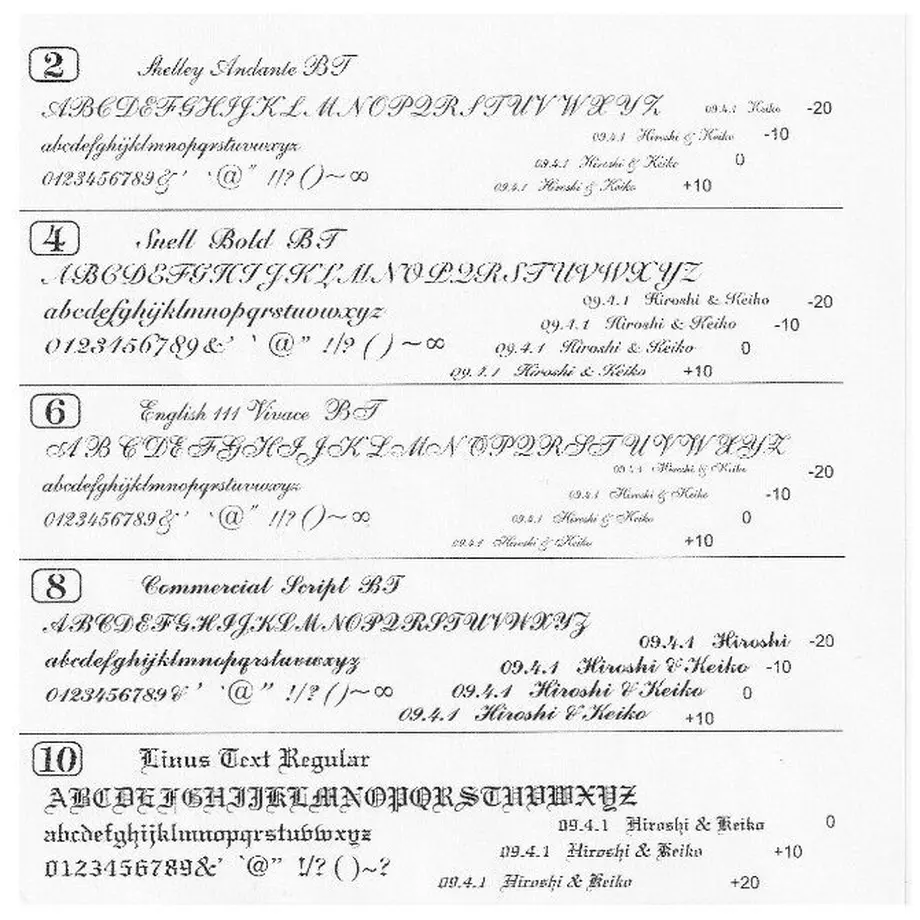 2 Shelley Andante BT
ABCDEFGHIJKLMNOPQRSTUVWXYZ 09.4.1 Keiko -20
abcdefghijklmnopqrstuvwxyz 09.4.1 Hiroshi & Keiko -10
09.4.1 Hiroshi & Keiko 0
0123456789&' `@" !/?()~∞ 09.4.1 Hiroshi & Keiko +10
4 Snell Bold BT
ABCDEFGHIJKLMNOPQRSTUVWXYZ
09.4.1 Hiroshi & Keiko -20
abcdefghijklmnopqrstuvwxyz 09.4.1 Hiroshi & Keiko -10
0123456789&' `@" !/?()~∞ 09.4.1 Hiroshi & Keiko 0
09.4.1 Hiroshi & Keiko +10
6 English 111 Vivace BT
ABCDEFGHIJKLMNOPQRSTUVWXYZ
09.4.1 Hiroshi & Keiko -20
abcdefghijklmnopqrstuvwxyz 09.4.1 Hiroshi & Keiko -10
0123456789&' `@" !/?()~∞ 09.4.1 Hiroshi & Keiko 0
09.4.1 Hiroshi & Keiko +10
8 Commercial Script BT
ABCDEFGHIJKLMNOPQRSTUVWXYZ
09.4.1 Hiroshi -20
abcdefghijklmnopqrstuvwxyz 09.4.1 Hiroshi & Keiko -10
0123456789&' `@" !/?()~∞ 09.4.1 Hiroshi & Keiko 0
09.4.1 Hiroshi & Keiko +10
10 Linus Text Regular
ABCDEFGHIJKLMNOPQRSTUVWXYZ
abcdefghijklmnopqrstuvwxyz 09.4.1 Hiroshi & Keiko 0
09.4.1 Hiroshi & Keiko +10
0123456789&' `@" !/?()~? 09.4.1 Hiroshi & Keiko +20